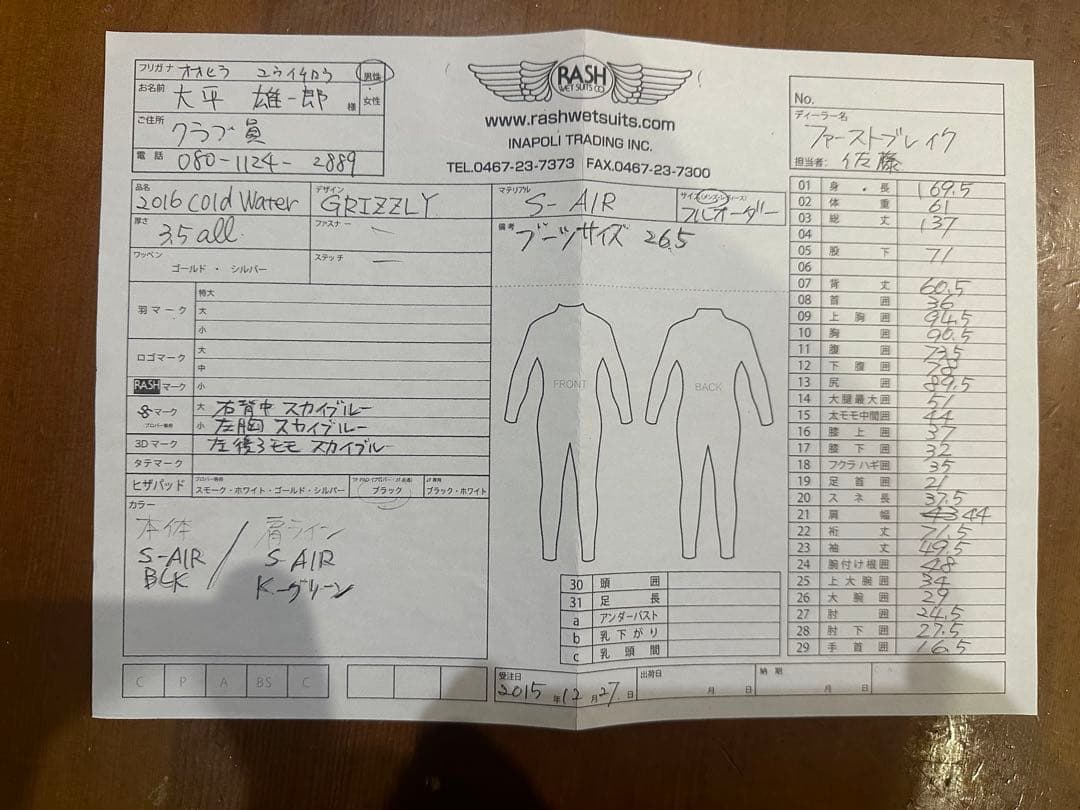 フリガナ オオヒラ ユウイチロウ 男性
・
お名前 大平 雄一郎 様 女性
ご住所 クラブ員
電話 080-1124-2889
RASH
WET SUITS CO
www.rashwetsuits.com
INAPOLI TRADING INC.
TEL.0467-23-7373 FAX.0467-23-7300
No.
ディーラー名
ファーストブレイク
担当者: 佐藤
品名 2016 Cold Water
デザイン GRIZZLY
マテリアル S-AIR
サイズ(メンズ・レディース) フルオーダー
厚さ 3.5 all.
ファスナー —
備考 ブーツサイズ 26.5
ワッペン ゴールド ・ シルバー
ステッチ —
羽マーク 特大
大
小
ロゴマーク 大
中
RASHマーク 小
マーク 大 右背中 スカイブルー
プロバー専用 小 左胸 スカイブルー
3Dマーク 左後ろモモ スカイブルー
タテマーク
ヒザパッド スモーク・ホワイト・ゴールド・シルバー ブラック ブラック・ホワイト
カラー
本体 / 肩ライン
S-AIR S-AIR
BCK K.グリーン
FRONT
BACK
01 身・長 169.5
02 体重 61
03 総丈 137
04
05 股下 71
06
07 背丈 60.5
08 首囲 36
09 上胸囲 94.5
10 胸囲 90.5
11 腹囲 73.5
12 下腹囲 78
13 尻囲 89.5
14 大腿最大囲 51
15 太モモ中間囲 44
16 膝上囲 37
17 膝下囲 32
18 フクラハギ囲 35
19 足首囲 21
20 スネ長 37.5
21 肩幅 43 44
22 裄丈 71.5
23 袖丈 49.5
24 腕付け根囲 48
25 上大腕囲 34
26 大腕囲 29
27 肘囲 24.5
28 肘下囲 27.5
29 手首囲 16.5
30 頭囲
31 足長
a アンダーバスト
b 乳下がり
c 乳頭間
C P A BS C
受注日 2015年12月27日
出荷日 月 日
納期 月 日